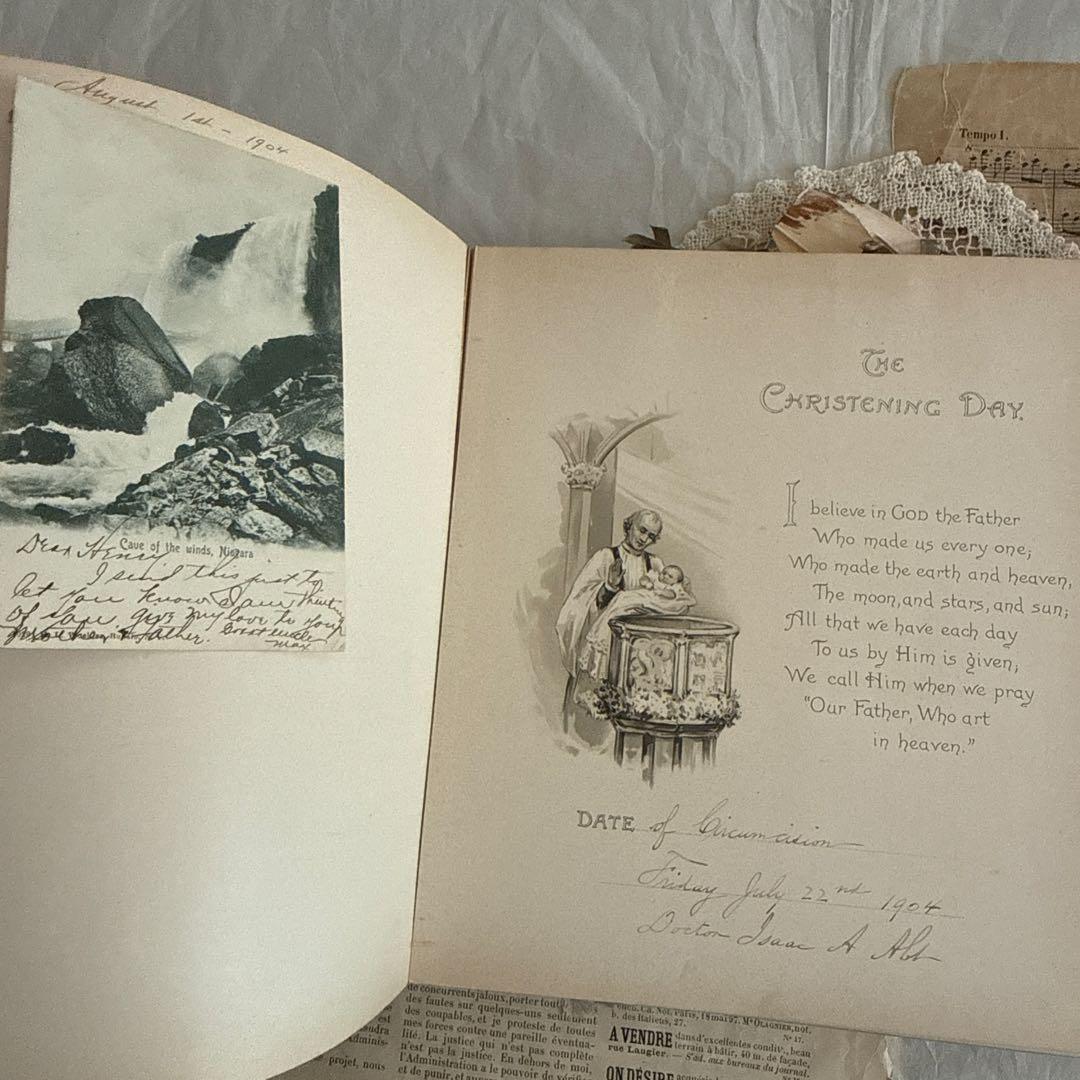 August 1st - 1904
Cave of the winds, Niagara
Dear Henry
I send this just to
let you know I am thinking
of you give my love to your
mother & father.
Max
Tempo I.
8
THE
CHRISTENING DAY.
I believe in GOD the Father
Who made us every one;
Who made the earth and heaven,
The moon, and stars, and sun;
All that we have each day
To us by Him is given;
We call Him when we pray
"Our Father, Who art
in heaven."
DATE of Circumcision
Friday July 22nd 1904
Doctor Isaac A Abt
de concurrents jaloux, porter tout
des fautes sur quelques-uns seulement
des coupables, et je proteste de toutes
mes forces contre une pareille éventua-
lité. La justice qui n'est pas complète
n'est pas la justice. En dehors de moi,
l'Administration a le pouvoir de
et de punir, et
est
adminis-
projet, nous
Paris, 18 mai 97. Me OLAGNIER, not.
b. des Italiens, 27.
N° 17.
A VENDRE dans d'excellentes condit., beau
terrain à bâtir, 40 m. de façade,
rue Laugier. — S'ad. aux bureaux du journal.
ON DÉSIRE